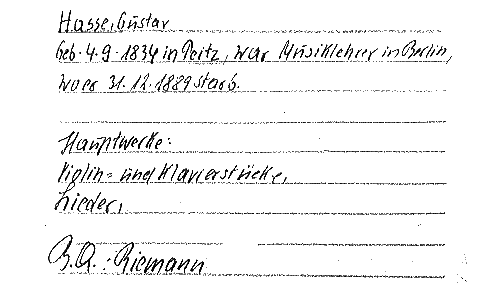 Hasse, Gustav
Geb. 4.9.1834 in Peitz, war Musiklehrer in Berlin,
wo er 31.12.1889 starb.
Hauptwerke:
Violin- und Klavierstücke,
Lieder,
B.Q.: Riemann